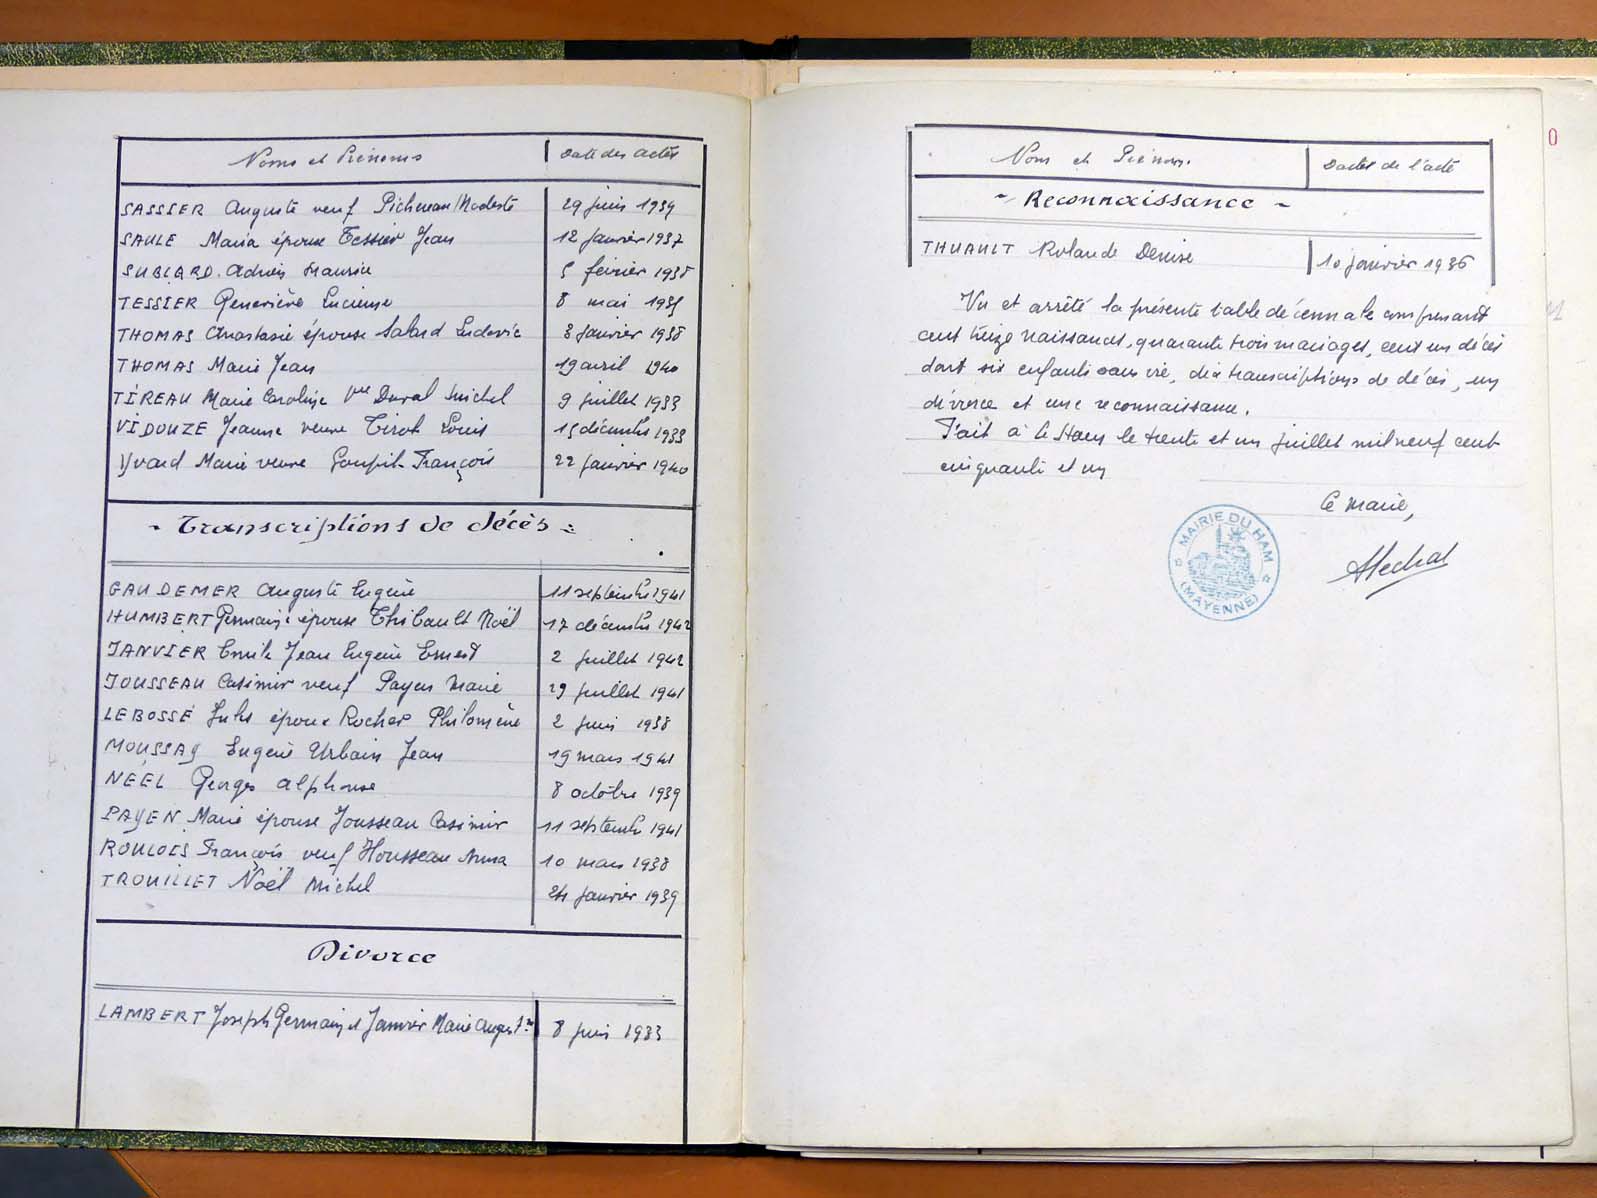 Noms et Prénoms | Date des actes
SASSIER Auguste veuf Pichereau Modeste | 29 juin 1939
SAULE Maria épouse Tessier Jean | 12 janvier 1937
SUBLARD Adrien Maurice | 5 février 1938
TESSIER Geneviève Lucienne | 8 mai 1935
THOMAS Anastasie épouse Salard Ludovic | 3 janvier 1938
THOMAS Marie Jean | 19 avril 1940
TIREAU Marie Caroline Vve Duval Michel | 9 juillet 1933
VIDOUZE Jeanne veuve Tirot Louis | 15 décembre 1933
Yvard Marie veuve Goupil François | 22 janvier 1940
- Transcriptions de décès -
GAUDEMER Auguste Eugène | 11 septembre 1941
HUMBERT Germaine épouse Thibault Noël | 17 décembre 1942
JANVIER Emile Jean Eugène Ernest | 2 juillet 1942
JOUSSEAU Casimir veuf Payen Marie | 29 juillet 1941
LEBOSSÉ Jules époux Rocher Philomène | 2 juin 1938
MOUSSAY Eugène Urbain Jean | 19 mars 1941
NÉEL Georges Alphonse | 8 octobre 1939
PAYEN Marie épouse Jousseau Casimir | 11 septembre 1941
ROULOIS François veuf Housseau Anna | 10 mars 1938
TROUILLET Noël Michel | 24 janvier 1939
Divorce
LAMBERT Joseph Germain et Janvier Marie August.ne | 8 juin 1933
Noms et Prénoms. | Dates de l'acte
- Reconnaissance -
THUAULT Rolande Denise | 10 janvier 1936
Vu et arrêté la présente table décennale comprenant
cent treize naissances, quarante trois mariages, cent un décès
dont six enfants sans vie, dix transcriptions de décès, un
divorce et une reconnaissance.
Fait à Le Ham le trente et un juillet mil neuf cent
cinquante et un
Le Maire,
MAIRIE DU HAM
(MAYENNE)
0